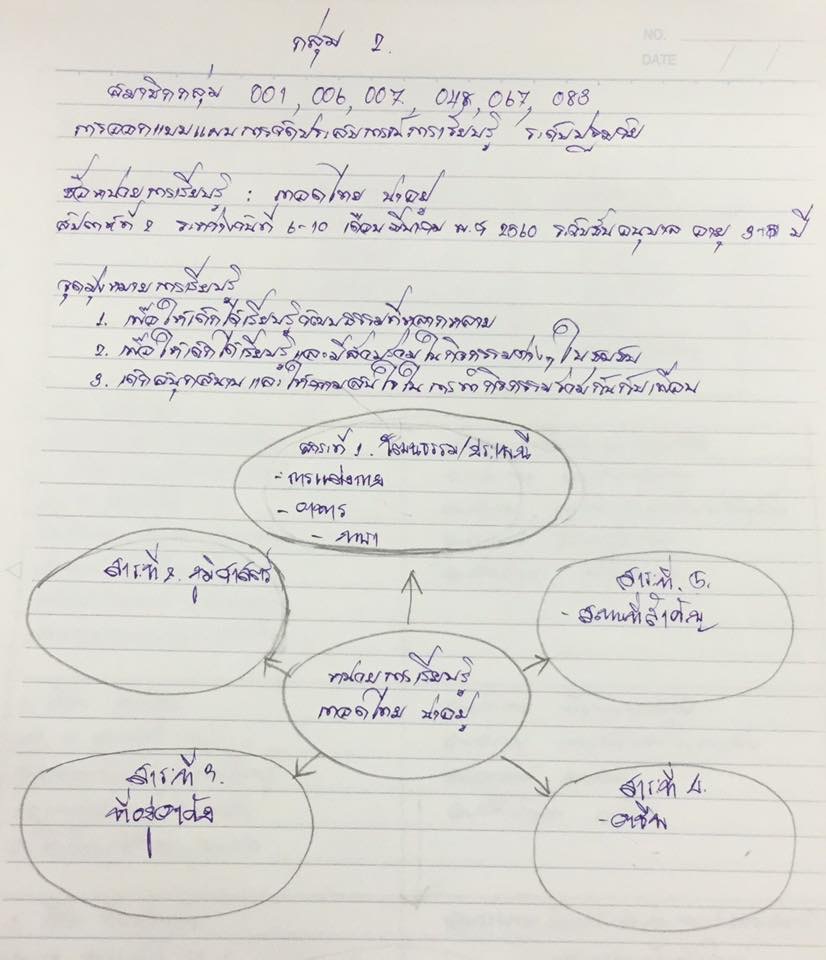 กลุ่ม 2.
NO.
DATE
สมาชิกกลุ่ม 001, 006, 007, 048, 067, 083
การออกแบบแผนการจัดประสบการณ์การเรียนรู้ ระดับปฐมวัย
ชื่อหน่วยการเรียนรู้ : ภาคใต้ น่าอยู่
สัปดาห์ที่ 2 ระหว่างวันที่ 6-10 เดือนมีนาคม พ.ศ 2560 ระดับชั้นอนุบาล อายุ ปี
จุดมุ่งหมายการเรียนรู้
1. เพื่อให้เด็กได้เรียนรู้วัฒนธรรมที่หลากหลาย
2. เพื่อให้เด็กได้เรียนรู้และมีส่วนร่วมในกิจกรรมต่างๆ ในชุมชน
3. เด็กสนุกสนานและให้ความสนใจในการทำกิจกรรมร่วมกันกับเพื่อน
สาระที่ 1. วัฒนธรรม/ประเพณี
- การแต่งกาย
- อาหาร
- ภาษา
สาระที่ 2. ภูมิศาสตร์
สาระที่ 5.
- สถานที่สำคัญ
หน่วยการเรียนรู้
น่าอยู่
สาระที่ 3.
ที่อยู่อาศัย
สาระที่ 4.
- อาชีพ